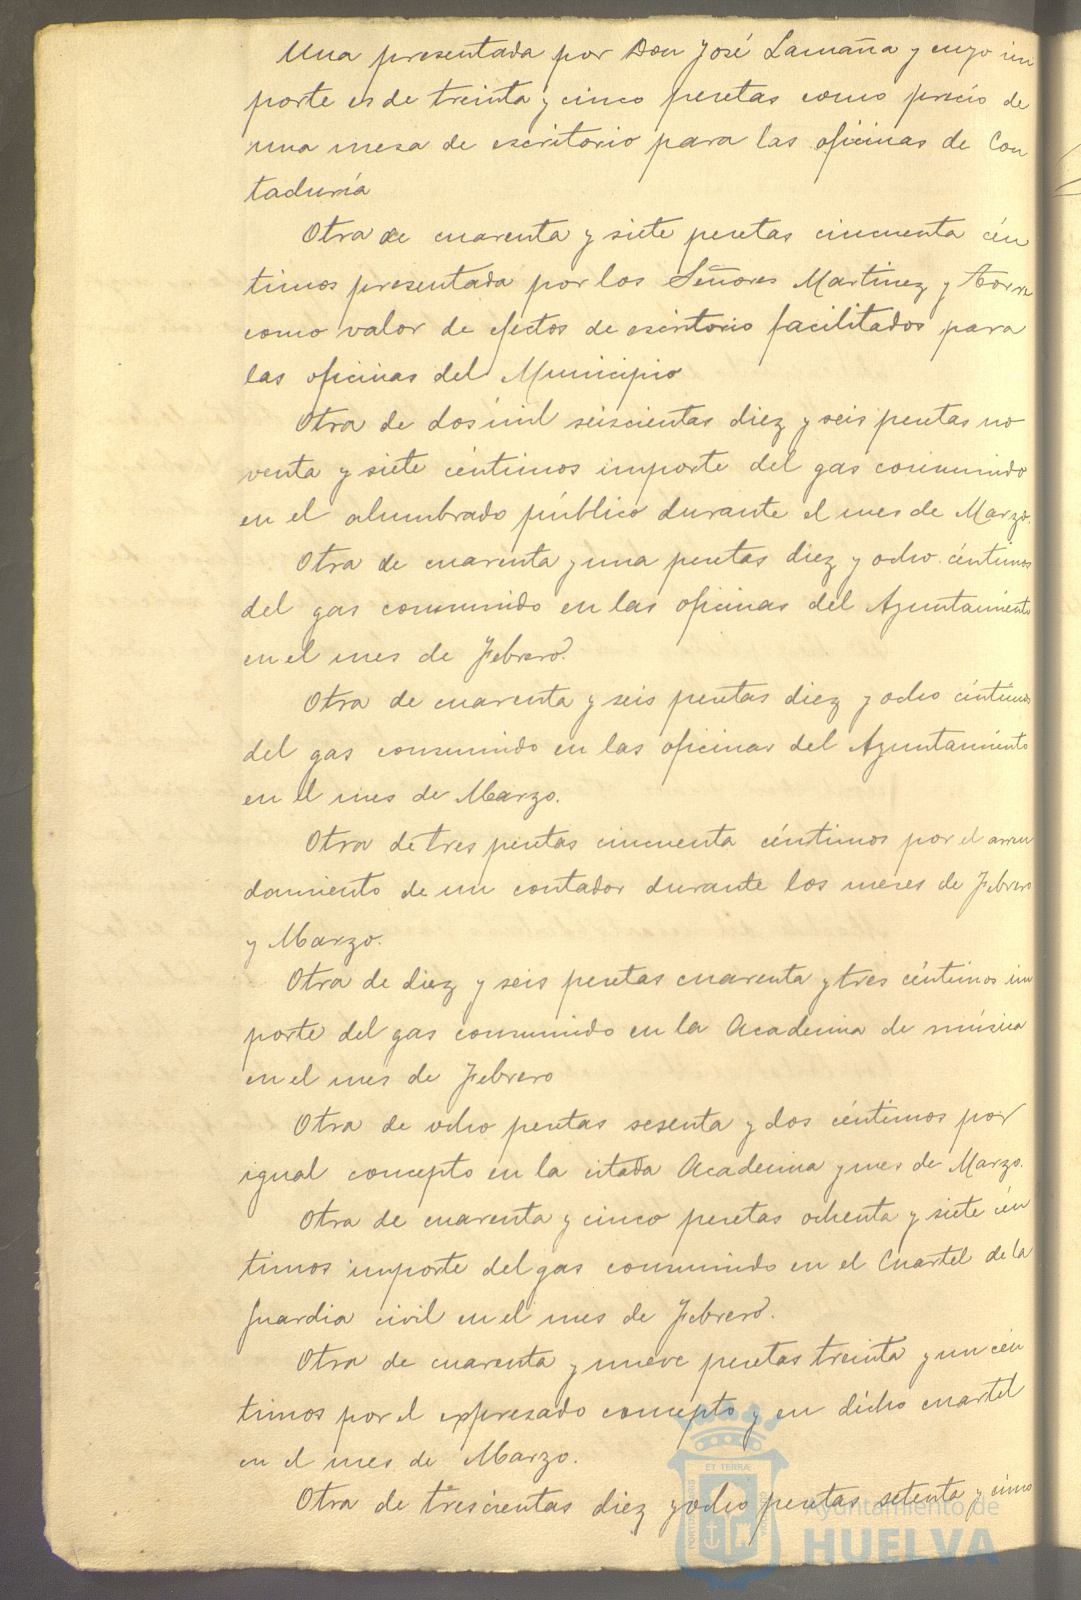 Una presentada por Don José Lamaña y cuyo im
porte es de treinta y cinco pesetas como precio de
una mesa de escritorio para las oficinas de Con
taduría
Otra de cuarenta y siete pesetas cincuenta cén
timos presentada por los Señores Martinez y Torre
como valor de efectos de escritorio facilitados para
las oficinas del Municipio
Otra de dos mil seiscientas diez y seis pesetas no
venta y siete céntimos importe del gas consumido
en el alumbrado público durante el mes de Marzo.
Otra de cuarenta y una pesetas diez y ocho céntimos
del gas consumido en las oficinas del Ayuntamiento
en el mes de Febrero.
Otra de cuarenta y seis pesetas diez y ocho céntimos
del gas consumido en las oficinas del Ayuntamiento
en el mes de Marzo.
Otra de tres pesetas cincuenta céntimos por el arren
damiento de un contador durante los meses de Febrero
y Marzo.
Otra de diez y seis pesetas cuarenta y tres céntimos im
porte del gas consumido en la Academia de música
en el mes de Febrero
Otra de ocho pesetas sesenta y dos céntimos por
igual concepto en la citada Academia y mes de Marzo.
Otra de cuarenta y cinco pesetas ochenta y siete cén
timos importe del gas consumido en el Cuartel de la
Guardia civil en el mes de Febrero.
Otra de cuarenta y nueve pesetas treinta y un cén
timos por el expresado concepto y en dicho cuartel
en el mes de Marzo.
Otra de trescientas diez y ocho pesetas setenta y cinco
ET TERRÆ
Ayuntamiento de
HUELVA